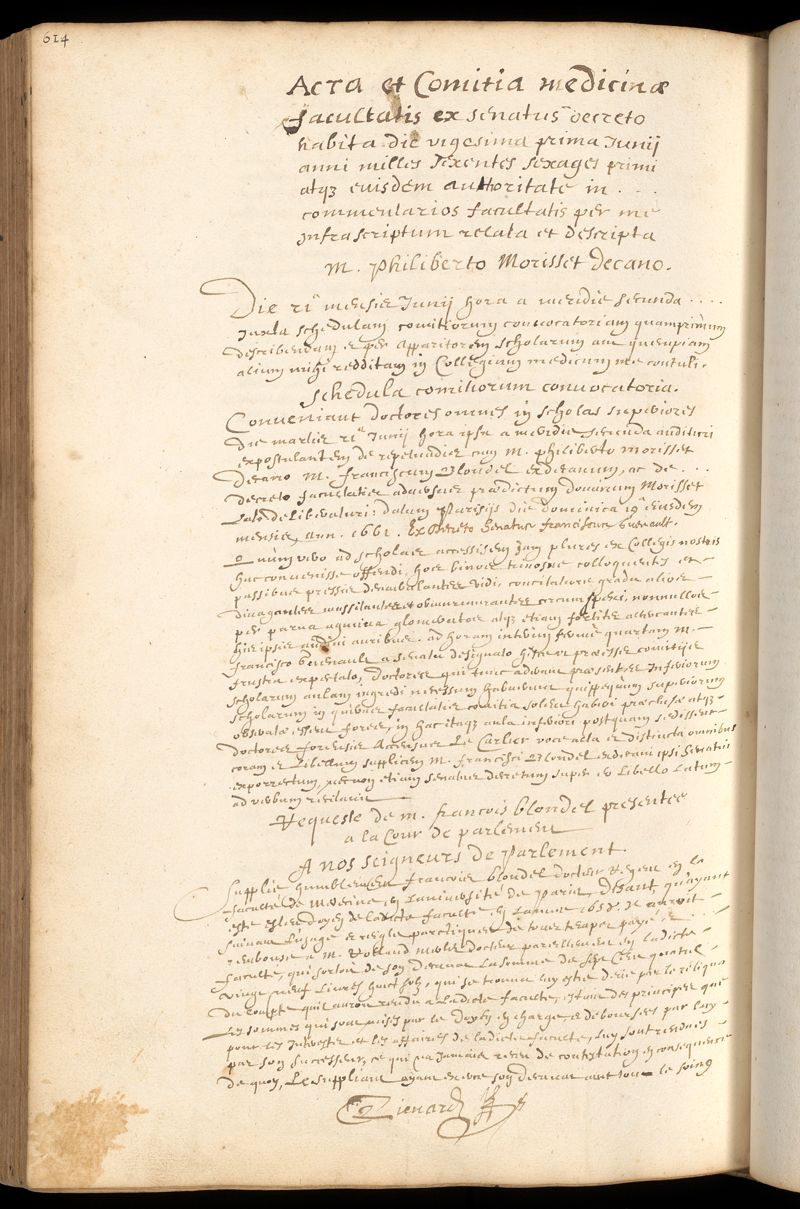 614
Acta et Comitia medicinæ
facultatis ex senatus decreto
habita die vigesima prima Junij
anni milles sexentes sexages primi
atqz eiusdem authoritate in . . .
commentarios facultatis per me
infrascriptum relata et descripta
M. Philiberto Morisset Decano.
Die 21ª mensis Junij hora a meridie secunda . . . .
Juxta schedulam comitiorum convocatoriam quamprimum
describendam et per apparitorem scholarum aut quempiam
alium mihi redditam in Collegium medicum me contuli.
Schedula comitiorum convocatoria.
Conveniant doctores omnes in scholas superiores
die martis 21ª Junij hora ipsa a meridie secunda audituri
expostulantem de repetundis cum M. Philiberto Morisset
Decano M. franciscum Blondel exdecanum, ac de . . .
decreto facultatis adversus prædictum Dominum Morisset
Lato deliberaturi: datum Parisijs die dominica 19ª eiusdem
mensis, ann. 1661. Ex Decreto Senatus franciscus Guenault.
Quum vero ad scholas accessissem jam plures ex Collegis nostris
huc convenisse offendi, hos binos trinosue colloquentes et
passibus pressis deambulantes vidi, concitatiore gradu alios
divagantes mussitantes et obmurmurantes circumspexi, nonnullos
per parva agmina glomeratos atqz etiam fortiter altercantes
his ipsis audivi auribus. ad horam interim ferme quartam M.
francisco Guenault a senatu designato his ut præesset comitijs
frustra expectato, Doctores qui tunc aderant præsentes Inferiorum
scholarum aulam ingredi necessum habuerunt quippe quum superiorum
scholarum in quibus facultatis comitia solent haberi præclusæ atqz
obseratæ essent fores, in hac itaqz aula inferiori postquam sedissent
doctores forensis Accensus Le Carlier voce alta et distincta omnibus
coram et Libellum supplicem M. francisci Blondel exdecani ipsi senatui
exporrectum, necnon etiam senatus decretum super eo Libello Latum
ad verbum recitavit
Requeste de m. francois blondel presentee
a la Cour de parlement
A nos seigneurs de Parlement.
Supplie humblement francois blondel docteur Regent en la
faculté de Medecine en Luniversité de Paris, disant quayant
este esleu doyen de ladicte faculté en Lannee 1658. Il auroit
suivant Lusage et reigle pratiquee de tout temps payé et . . .
remboursé a M. Rolland merlet docteur pareillement en ladicte
faculté, qui sortoit de son decanat La somme de sept Cens quatre
vingt neuf Livres huict solz, qui se trouva luy estre deue par le reliqua
du compte quil auroit rendu a Ladicte faculté, estant des principes que
Les sommes qui sont mises par le Doyen en charge et deboursees par luy
pour les Interestz et les affaires de ladicte faculté, luy sont rendues
par son successeur, ce qui na jamais receu de contestation en consequence
de quoy, Le suppliant ayant exercé son decanat avec tout le soing
Pienard